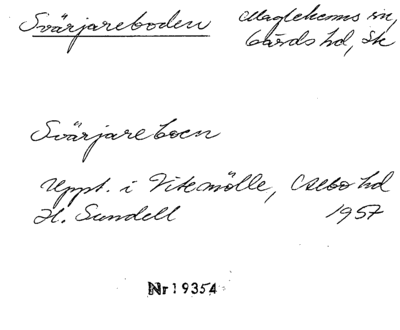 Svärjareboden
Maglehems sn,
Gärds hd, Sk
Svärjareboen
Uppt. i Vitemölle, Albo hd
H. Sundell 1957
Nr 19354